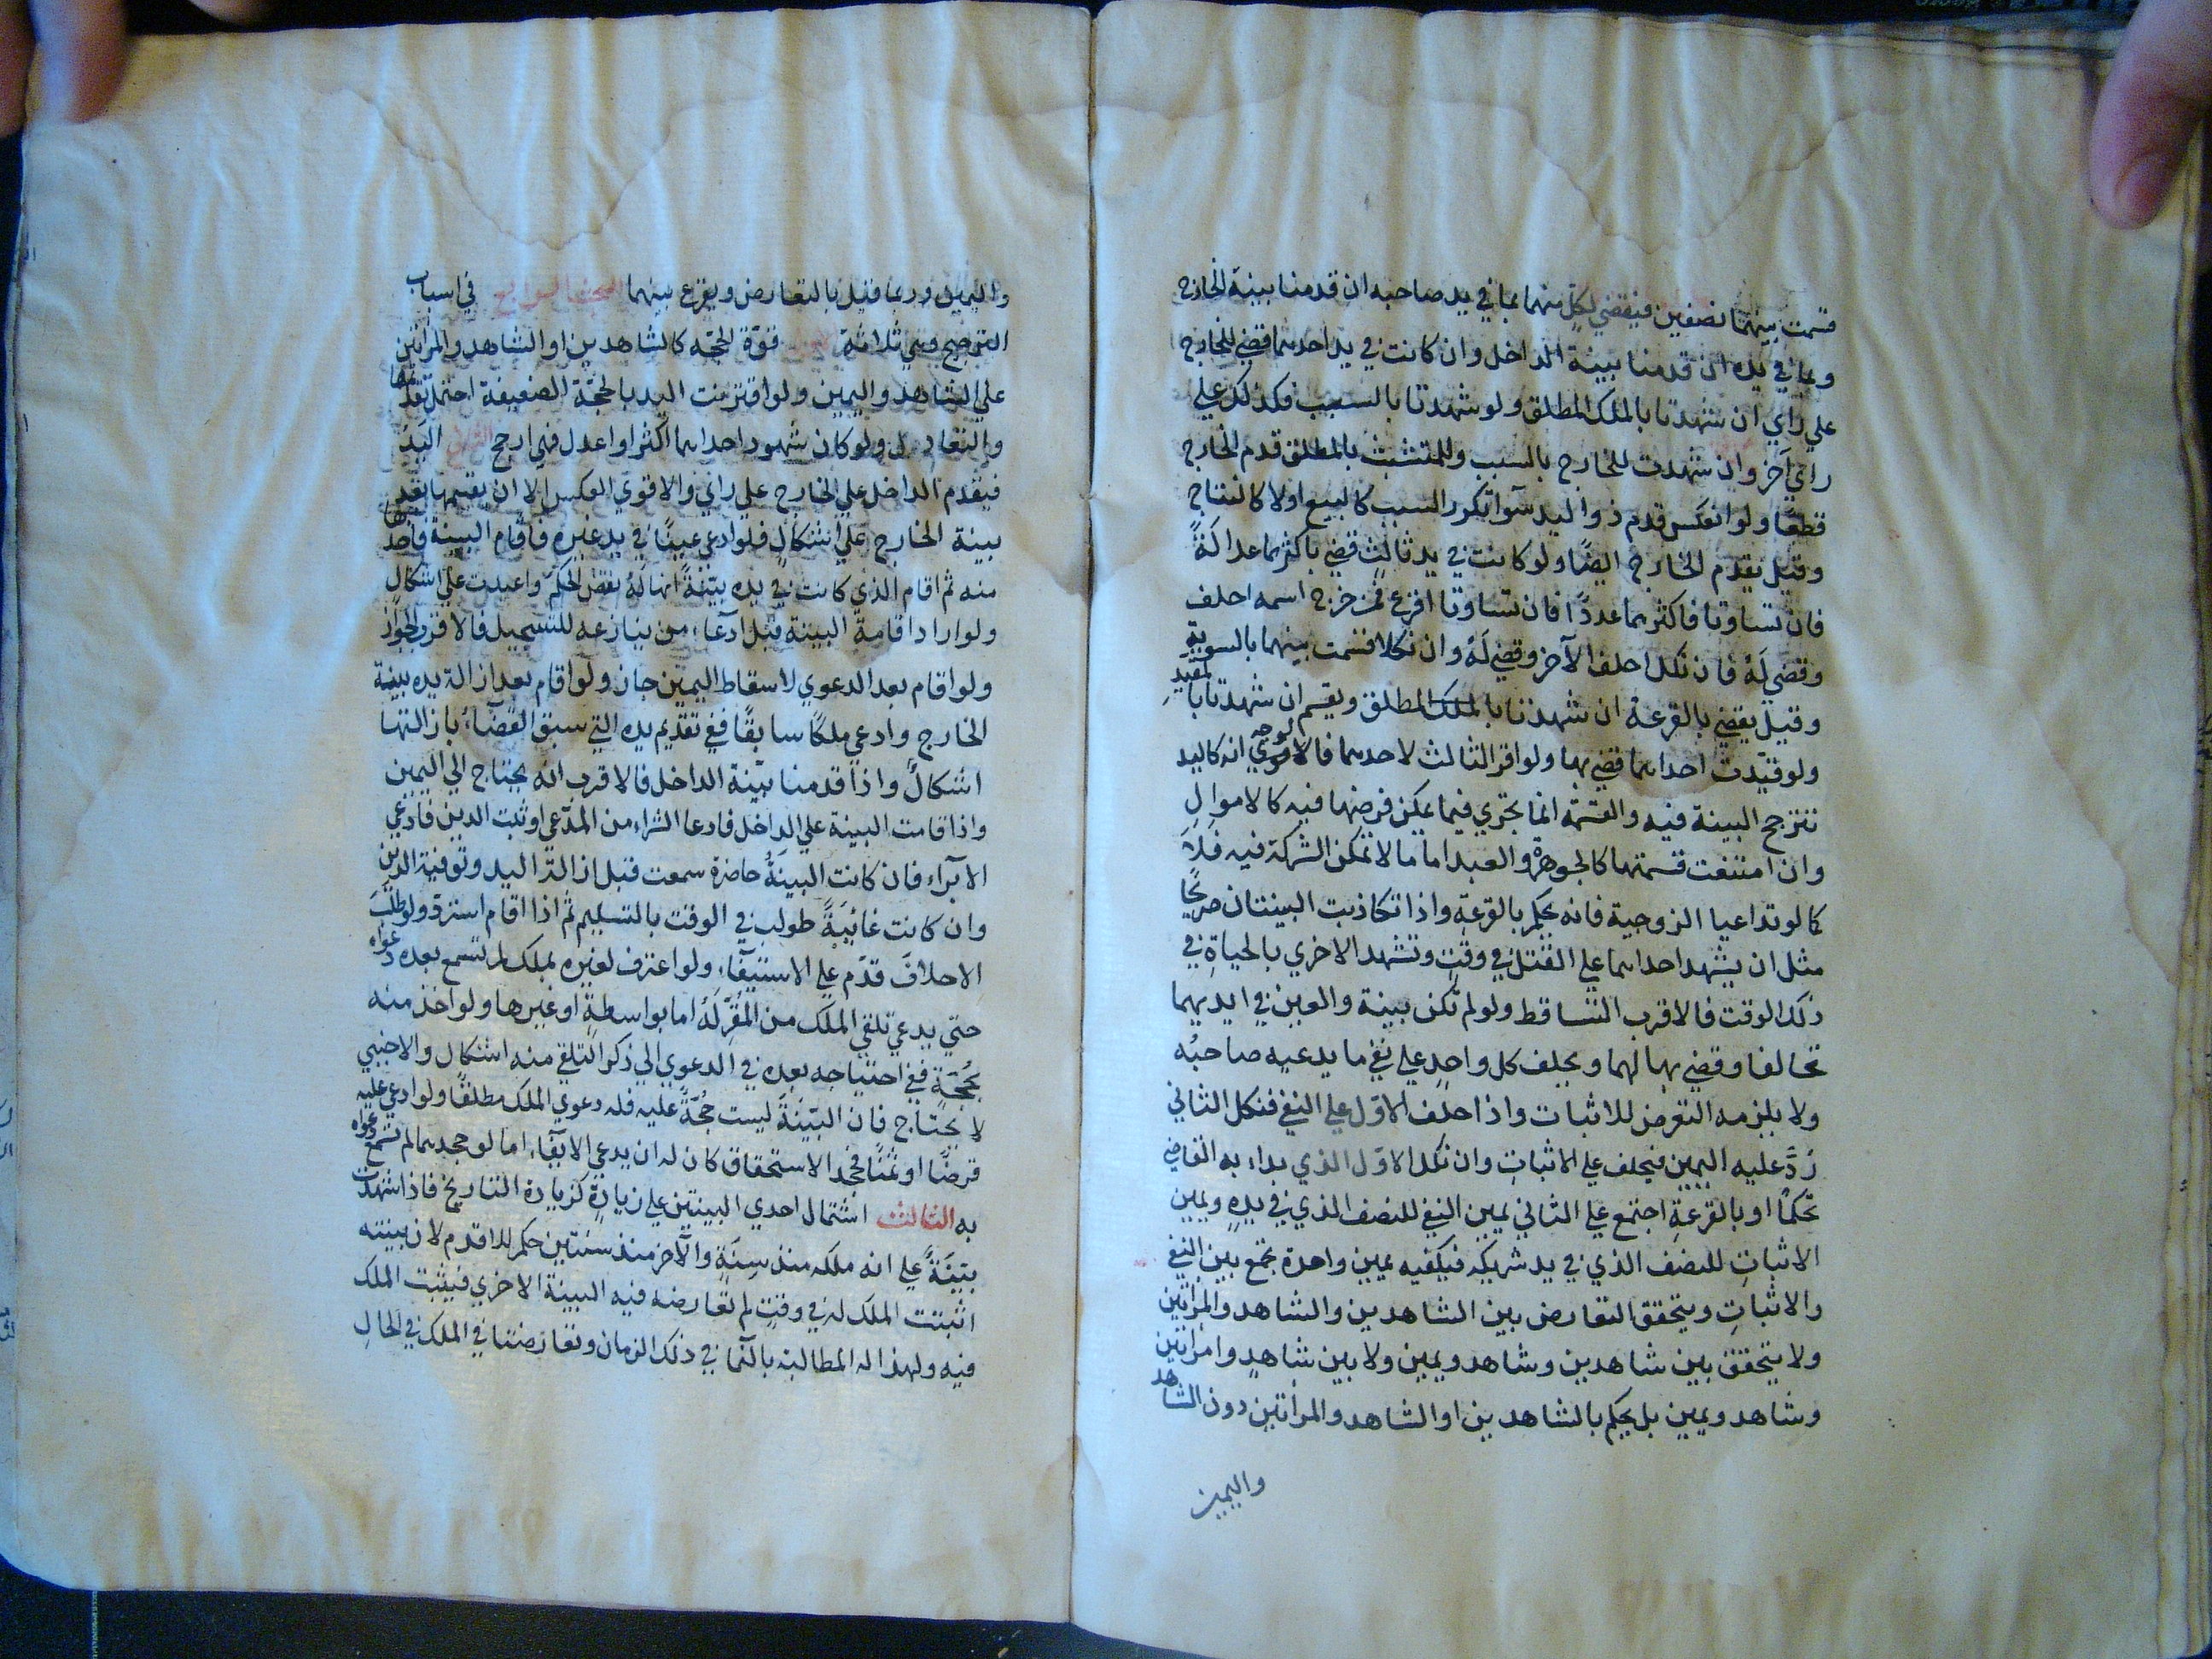 قسمت بينهما نصفين فيقضي لكل منهما بما في يد صاحبه ان قدمنا بينة الخارج
وبما في يده ان قدمنا بينة الداخل وان كانت في يد احدهما قضي للخارج
علي راي ان شهدتا بالملك المطلق ولو شهدتا بالسبب فكذلك علي
راي آخر وان شهدت للخارج بالسبب وللمتشبث بالمطلق قدم الخارج
قطعًا ولو انعكس قدم ذو اليد سوآ تكرر السبب كالبيع اولا كالنتاج
وقيل يقدم الخارج ايضًا ولو كانت في يد ثالثٍ قضي باكثرهما عدالَةً
فان تساوتا فاكثرهما عددًا فان تساوتا اقرع فمن خرج اسمه احلف
وقضي لَهُ فان نكل احلف الآخر وقضي لَهُ وان نكلا قسمت بينهما بالسوية
وقيل يقضي بالقرعة ان شهدتا بالملك المطلق ويقسم ان شهدتا بالمقيدِ
ولو قيّدت احداهما قضي بها ولو اقر الثالث لاحدهما فالاقوي انه كاليد
تترجح البينة فيه والقسمة انما تجري فيما يمكن فرضها فيه كالاموالِ
وان امتنعت قسمتها كالجوهرة والعبد اما ما لا تمكن الشركة فيه فَلَا
كما لو تداعيا الزوجية فانه يحكم بالقرعة واذا تكاذبت البينتان صريحًا
مثل ان يشهد احداهما علي القتل في وقتٍ وتشهد الاخري بالحياةِ في
ذلك الوقت فالاقرب التساقط ولو لم تكن بينة والعين في ايديهما
تحالفا وقضي بها لهما ويحلف كل واحدٍ علي نفي ما يدعيه صاحبُه
ولا يلزمه التعرض للاثبات واذا حلف الاوّل علي النفي فنكل الثاني
رَدَّ عليه اليمين فيحلف علي الاثباتِ وان نكل الاوّل الذي بداء به القاضي
تحكمًا او بالقرعةِ اجتمع علي الثاني يمين النفي للنصف الذي في يدهِ ويمين
الاثباتِ للنصف الذي في يد شريكه فيكفيه يمين واحدة تجمع بين النفي
والاثباتِ ويتحقق التعارض بين الشاهدين والشاهد والمراتين
ولا يتحقق بين شاهدين وشاهد ويمين ولا بين شاهدٍ وامراتين
وشاهد ويمين بل يحكم بالشاهدين او الشاهد والمراتين دون الشاهد
واليمين
واليمين وربما قيل بالتعارض ويقرع بينهما البحث الرابع في اسباب
الترجيح وهي ثلاثة قوّة الحجّه كالشاهدين او الشاهد والمراتين
علي الشاهد واليمين ولو اقترنت اليد بالحجّة الضعيفة احتمل تقدّمها
والتعادل ولو كان شهود احداهما اكثر او اعدل فهي ارجح الثاني اليَدُ
فيقدم الداخل علي الخارج علي راي والاقوي العكس الا ان يقيمها بعد
بينة الخارج علي اشكالٍ فلو ادعي عينًا في يد غيره فاقام البينة فاخذها
منه ثم اقام الذي كانت في يده بيّنةً انها لَهُ نقض الحكم واعيدت علي اشكالٍ
ولو اراد اقامة البينة قبل ادّعاء من ينازعه للتسجيل فالاقرب الجواز
ولو اقام بعد الدعوي لاسقاط اليمين جاز ولو اقام بعد ازالة يده ببينة
الخارج وادعي ملكًا سابقًا ففي تقديم يده التي سبق القضآء بازالتها
اشكالٌ واذا قدمنا بيّنة الداخل فالاقرب انه يحتاج الي اليمين
واذا قامت البينة علي الداخل فادعا الشراء من المدّعي او ثبت الدين فادعي
الابرآء فان كانت البينَةُ حاضرة سمعت قبل ازالة اليد وتوفية الدين
وان كانت غائبَةً طولب في الوقت بالتسليم ثم اذا اقام استردّ ولو طلبَ
الاحلافَ قدّم علي الاستيفآء ولو اعترف لغيره بملك لم تسمع بعده دعواه
حتي يدعي تلقي الملك من المُقرِّ لَهُ اما بواسطةٍ او غيرها ولو اخذ منه
بحُجّةٍ ففي احتياجه بعده في الدعوي الي ذكر التلقي منه اشكال والاجنبي
لا يحتاج فان البيّنَةَ ليست حُجَّةً عليه فله دعوي الملك مطلقًا ولو ادعي عليه
قرضًا او ثمنًا فجحد الاستحقاق كان له ان يدعي الايفآء اما لو جحدهما لم تسمع دعواه
به الثالث اشتمال احدي البينتين علي زيادةٍ كزيادة التاريخ فاذا شهدت
بيّنَةً علي انه ملكه منذ سنَةٍ والآخر منذ سنتين حكم للاقدم لان بينته
اثبتت الملك له في وقتٍ لم تعارضه فيه البينة الاخري فيثبت الملك
فيه ولهذا له المطالبة بالنما في ذلك الزمان وتعارضتا في الملك في الحالِ